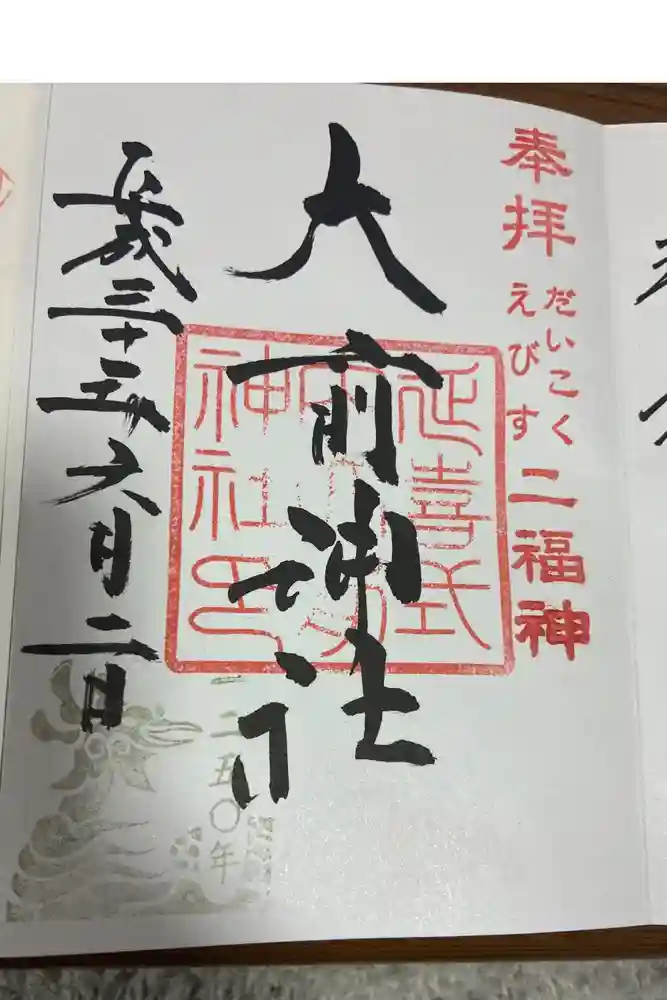 奉拝
だいこく
えびす
二福神
大前神社
延喜式
神社印
平成三十年六月二日
一二五〇年